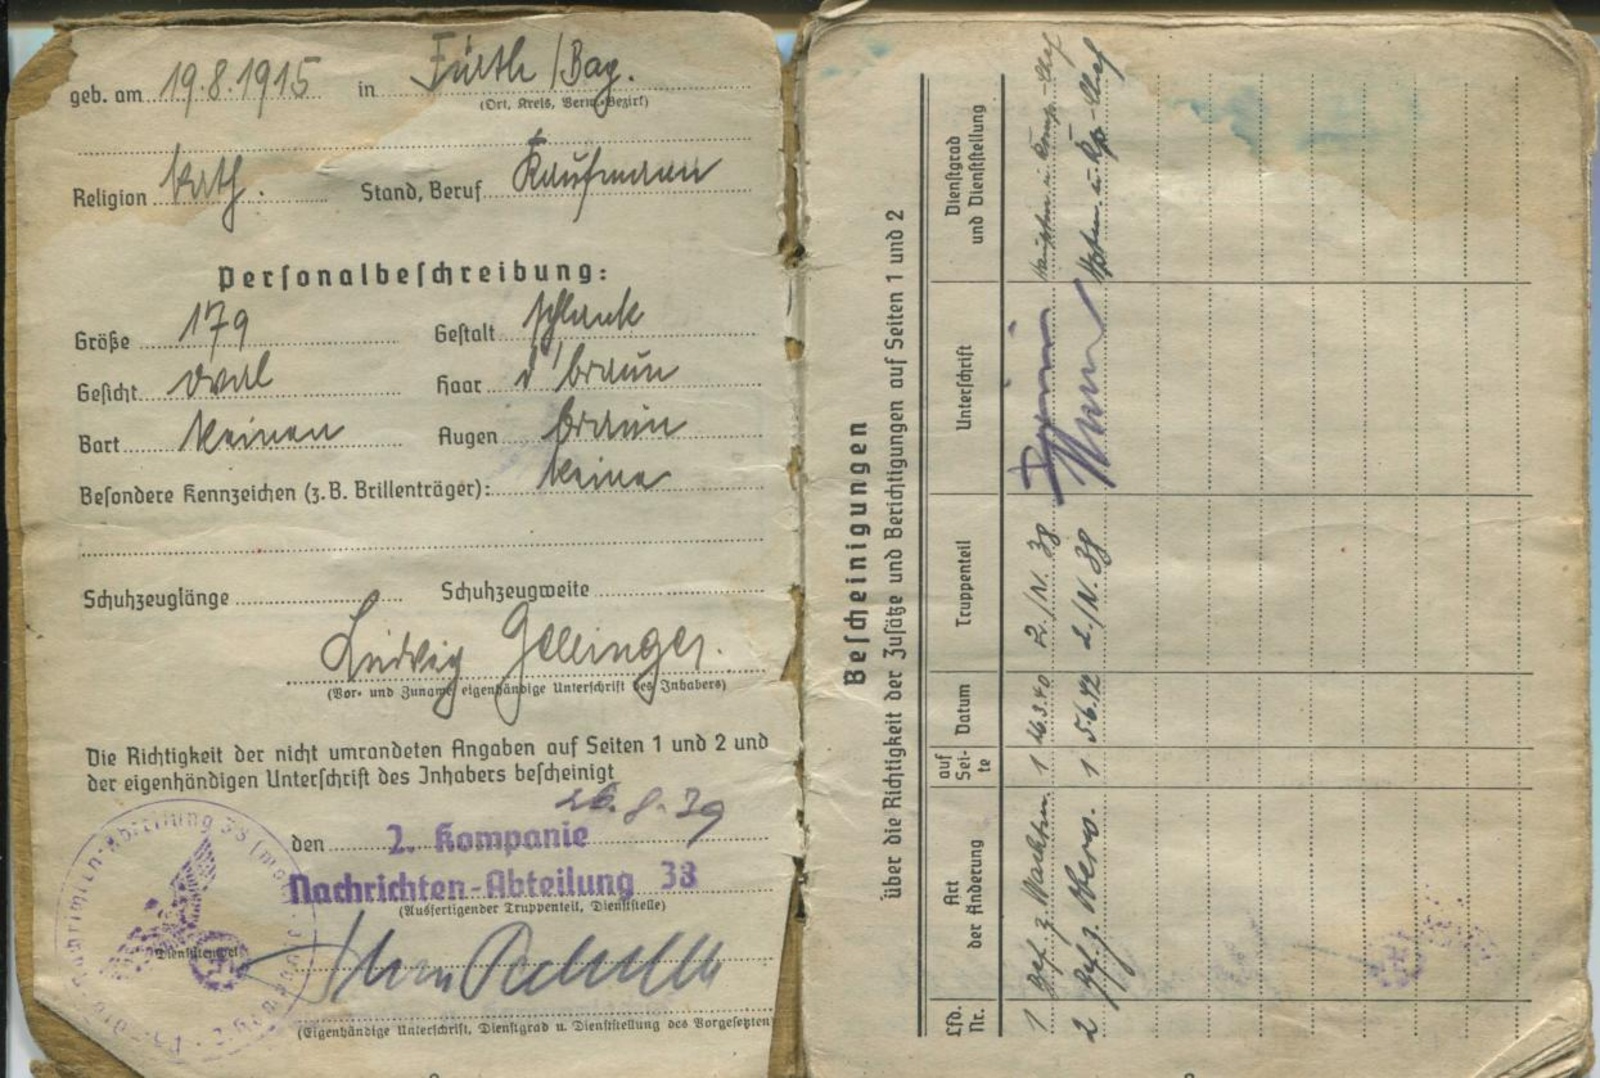 geb. am 19.8.1915 in Fürth /Bay.
(Ort, Kreis, Verw.-Bezirk)
Religion kath. Stand, Beruf Kaufmann
Personalbeschreibung:
Größe 179 Gestalt schlank
Gesicht oval Haar d'braun
Bart keinen Augen braun
Besondere Kennzeichen (z. B. Brillenträger): keine
Schuhzeuglänge Schuhzeugweite
Ludwig Gellinger.
(Vor- und Zuname, eigenhändige Unterschrift des Inhabers)
Die Richtigkeit der nicht umrandeten Angaben auf Seiten 1 und 2 und
der eigenhändigen Unterschrift des Inhabers bescheinigt
26.8.39
den 2. Kompanie
Nachrichten-Abteilung 38
(Ausfertigender Truppenteil, Dienststelle)
Dienststempel
(Eigenhändige Unterschrift, Dienstgrad u. Dienststellung des Vorgesetzten)
Bescheinigungen
über die Richtigkeit der Zusätze und Berichtigungen auf Seiten 1 und 2
Lfd. Nr. Art der Änderung auf Sei-te Datum Truppenteil Unterschrift Dienstgrad und Dienststellung
1 Bef. z. Wachtm. 1 2./N. 38 Hauptm. u. Komp.-Chef
2 Bef. z. 1 5.6.42 2./N. 38 Hptm. u. Kp.-Chef